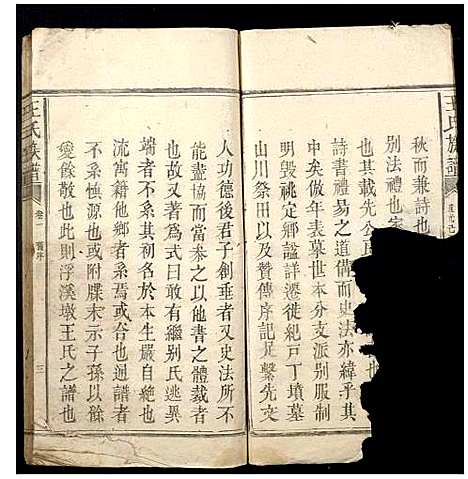 王氏族譜
秋而兼詩也
別法禮也家
其載先公
詩書禮易之道備而史法亦緯乎其
中矣故取世本分支派別服制
明毀祧御謚詳遷徙紀戸丁墳墓
山川祭田以及贊傳序記尤繫先文
人功德後君子創垂者又史法所不
能盡協而當叅之以他書之體裁者
也故又著為式曰敢有繼别氏逃異
端者不系其初名於本生嚴自絶也
流寓籍他鄉者系焉或合也通譜者
不系慎源也或附牒末示子孫以餘
變餘散也此則浮溪墩王氏之譜也
王氏族譜
卷一
三